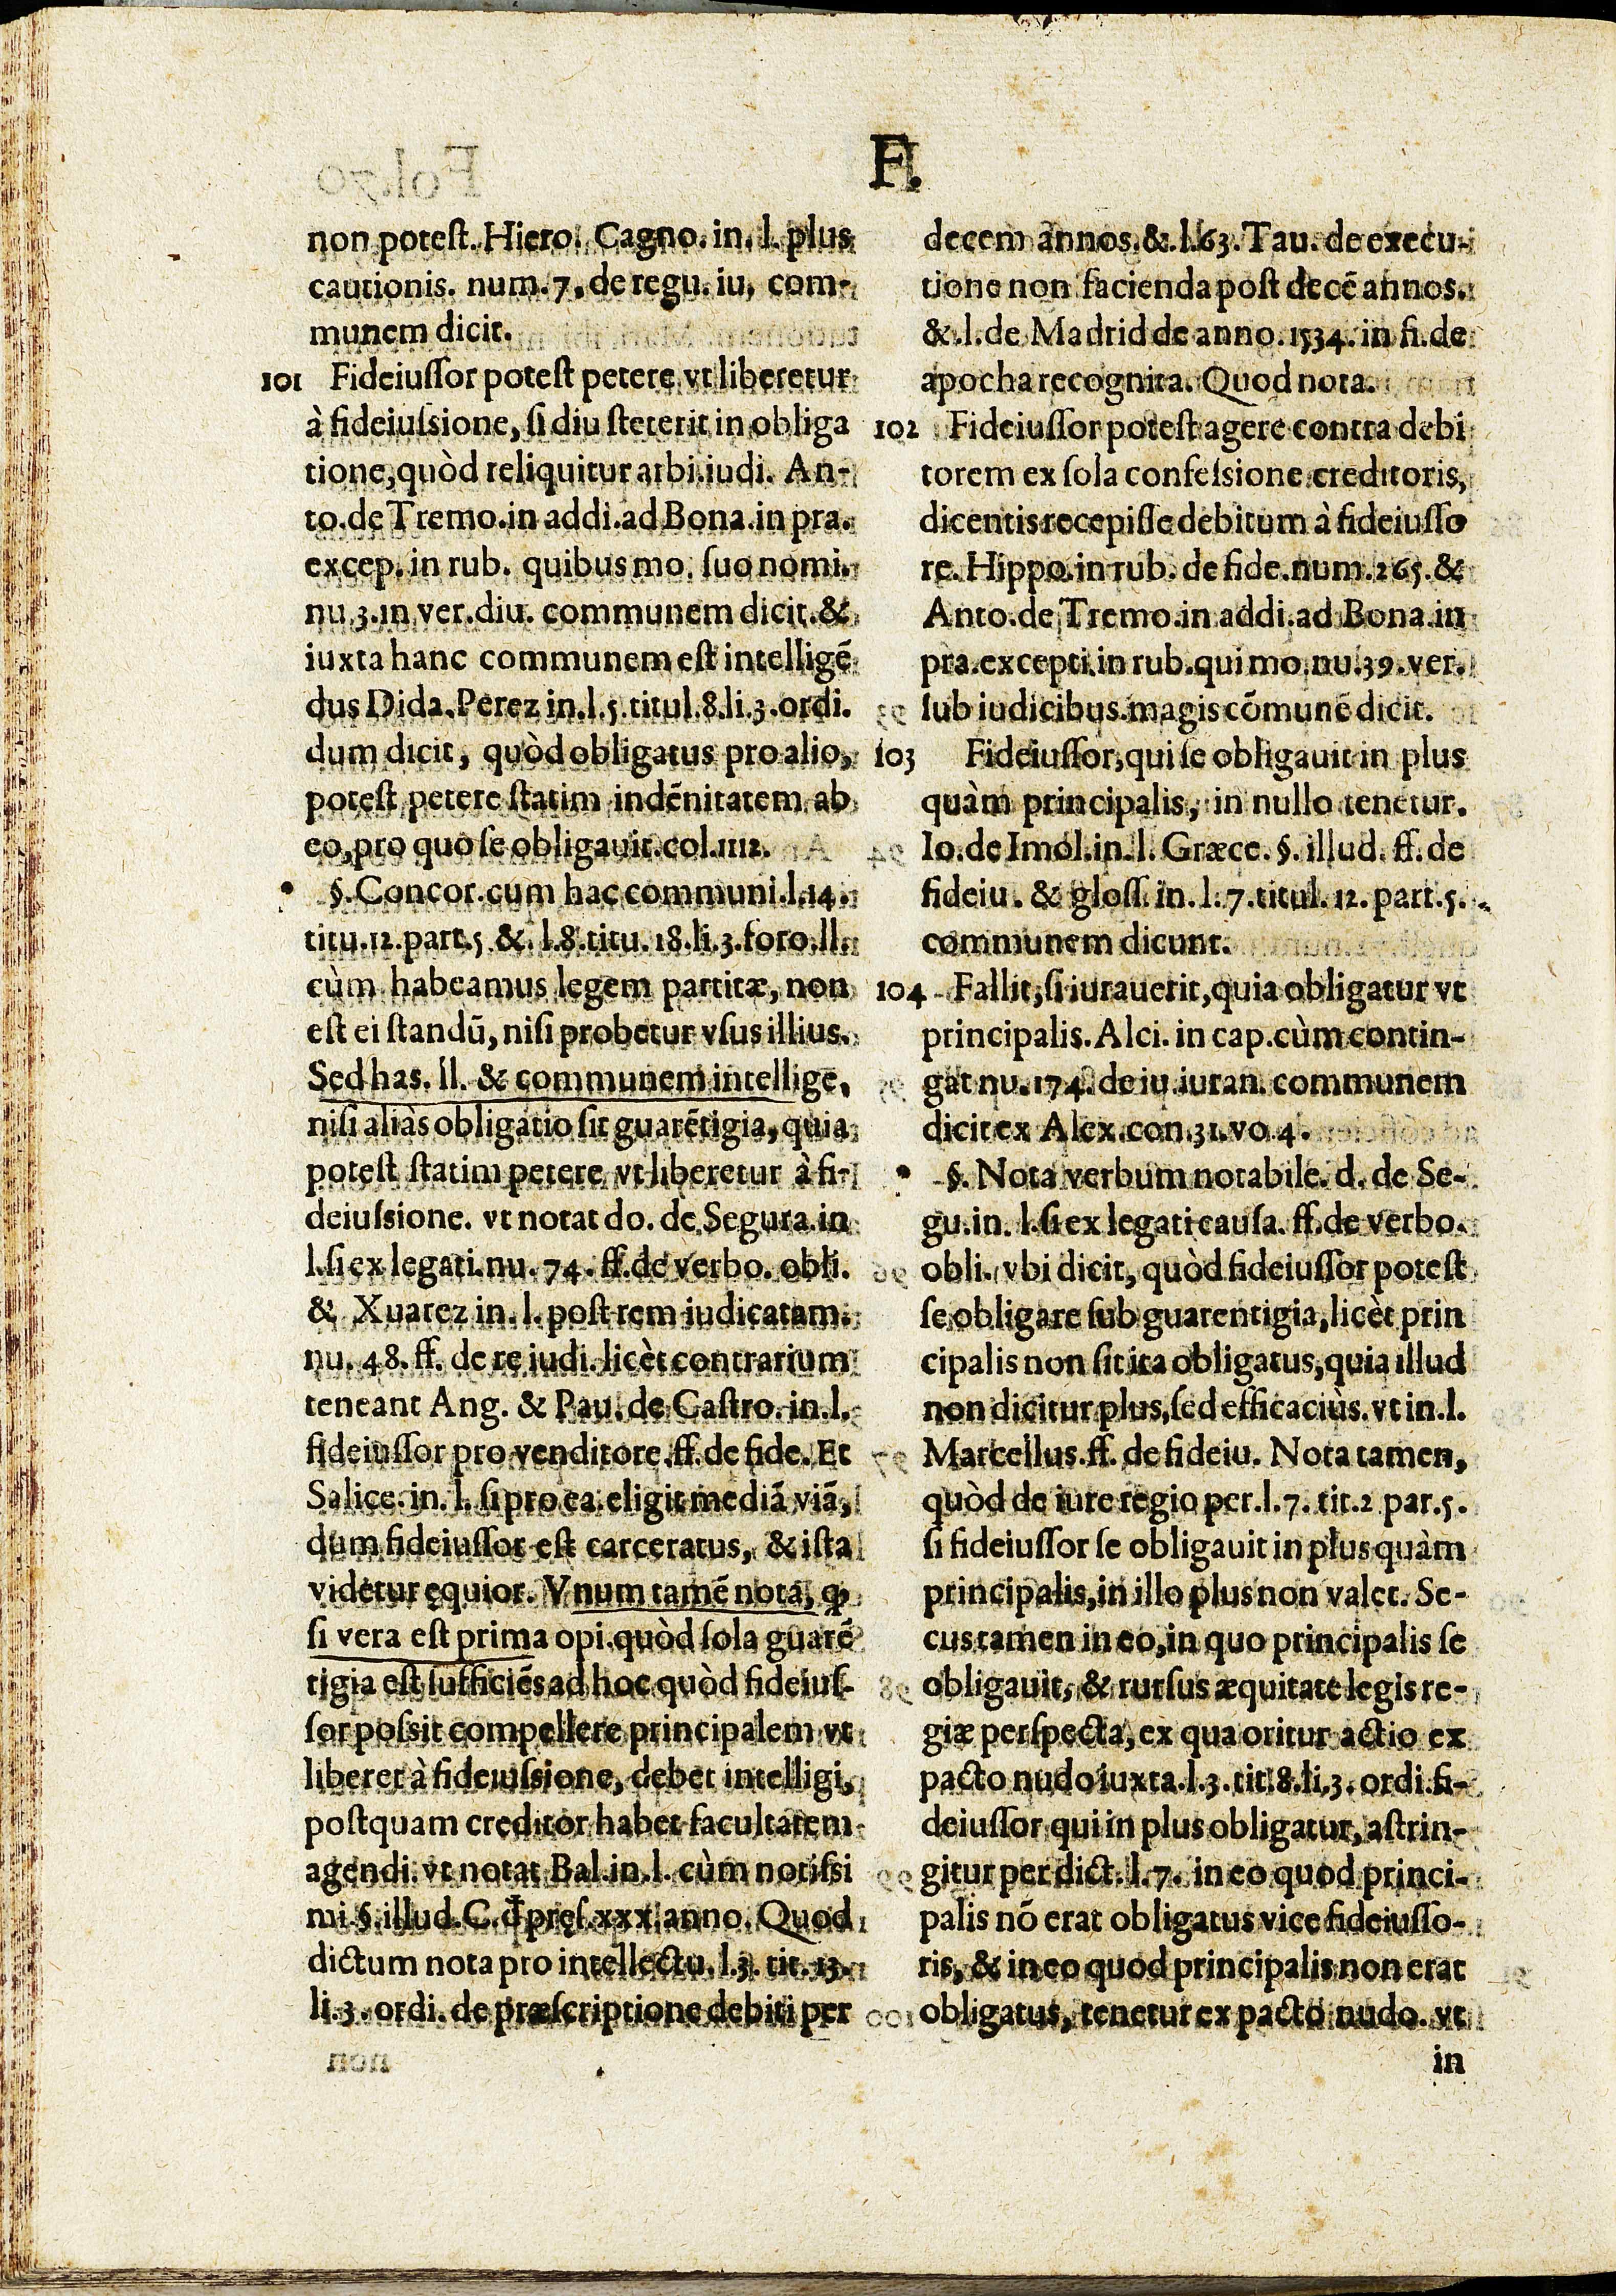 F.
non potest. Hiero. Cagno. in. l. plus
cautionis. num. 7. de regu. iu. com-
munem dicit.
101 Fideiussor potest petere vt liberetur
à fideiussione, si diu steterit in obliga
tione, quòd reliquitur arbi. iudi. An-
to. de Tremo. in addi. ad Bona. in pra.
excep. in rub. quibus mo. suo nomi.
nu. 3. in ver. diu. communem dicit. &
iuxta hanc communem est intelligẽ
dus Dida. Perez in. l. 5. titul. 8. li. 3. ordi.
dum dicit, quòd obligatus pro alio,
potest petere statim indẽnitatem ab
eo, pro quo se obligauit. col. IIII.
• §. Concor. cum hac communi. l. 14.
titu. 12. part. 5. &. l. 8. titu. 18. li. 3. foro. ll.
cùm habeamus legem partitæ, non
est ei standũ, nisi probetur vsus illius.
Sed has. ll. & communem intellige,
nisi aliàs obligatio sit guarẽtigia, quia
potest statim petere vt liberetur à fi-
deiussione. vt notat do. de Segura. in
l. si ex legati. nu. 74. ff. de verbo. obli.
& Xuarez in. l. post rem iudicatam.
nu. 48. ff. de re iudi. licèt contrarium
teneant Ang. & Pau. de Castro. in. l.
fideiussor pro venditore. ff. de fide. Et
Salice. in. l. si pro ea. eligit mediã viã,
dum fideiussor est carceratus, & ista
videtur ęquior. Vnum tamẽ nota, ꝙ
si vera est prima opi. quòd sola guarẽ
tigia est sufficiẽs ad hoc quòd fideius-
sor possit compellere principalem vt
liberet à fideiussione, debet intelligi,
postquam creditor habet facultatem
agendi. vt notat Bal. in. l. cùm notissi
mi. §. illud. C. đ pręs. xxx. anno. Quod
dictum nota pro intellectu. l. 3. tit. 13.
li. 3. ordi. de præscriptione debiti per
decem annos. &. l. 63. Tau. de execu-
tione non facienda post decẽ annos.
&. l. de Madrid de anno. 1534. in fi. de
apocha recognita. Quod nota.
102 Fideiussor potest agere contra debi
torem ex sola confessione creditoris,
dicentis recepisse debitum à fideiusso
re. Hippo. in rub. de fide. num. 265. &
Anto. de Tremo. in addi. ad Bona. in
pra. excepti. in rub. qui mo. nu. 39. ver.
sub iudicibus. magis cõmunẽ dicit.
103 Fideiussor, qui se obligauit in plus
quàm principalis, in nullo tenetur.
Io. de Imol. in. l. Græce. §. illud. ff. de
fideiu. & gloss. in. l. 7. titul. 12. part. 5.
communem dicunt.
104 Fallit, si iurauerit, quia obligatur vt
principalis. Alci. in cap. cùm contin-
gat nu. 174. de iu. iuran. communem
dicit ex Alex. con. 31. vo. 4.
• §. Nota verbum notabile. d. de Se-
gu. in. l. si ex legati causa. ff. de verbo.
obli. vbi dicit, quòd fideiussor potest
se obligare sub guarentigia, licèt prin
cipalis non sit ita obligatus, quia illud
non dicitur plus, sed efficaciùs. vt in. l.
Marcellus. ff. de fideiu. Nota tamen,
quòd de iure regio per. l. 7. tit. 2 par. 5.
si fideiussor se obligauit in plus quàm
principalis, in illo plus non valet. Se-
cus tamen in eo, in quo principalis se
obligauit, & rursus æquitate legis re-
giæ perspecta, ex qua oritur actio ex
pacto nudo iuxta. l. 3. tit. 8. li. 3. ordi. fi-
deiussor qui in plus obligatur, astrin-
gitur per dict. l. 7. in eo quod princi-
palis nõ erat obligatus vice fideiusso-
ris, & in eo quod principalis non erat
obligatus, tenetur ex pacto nudo. vt
in